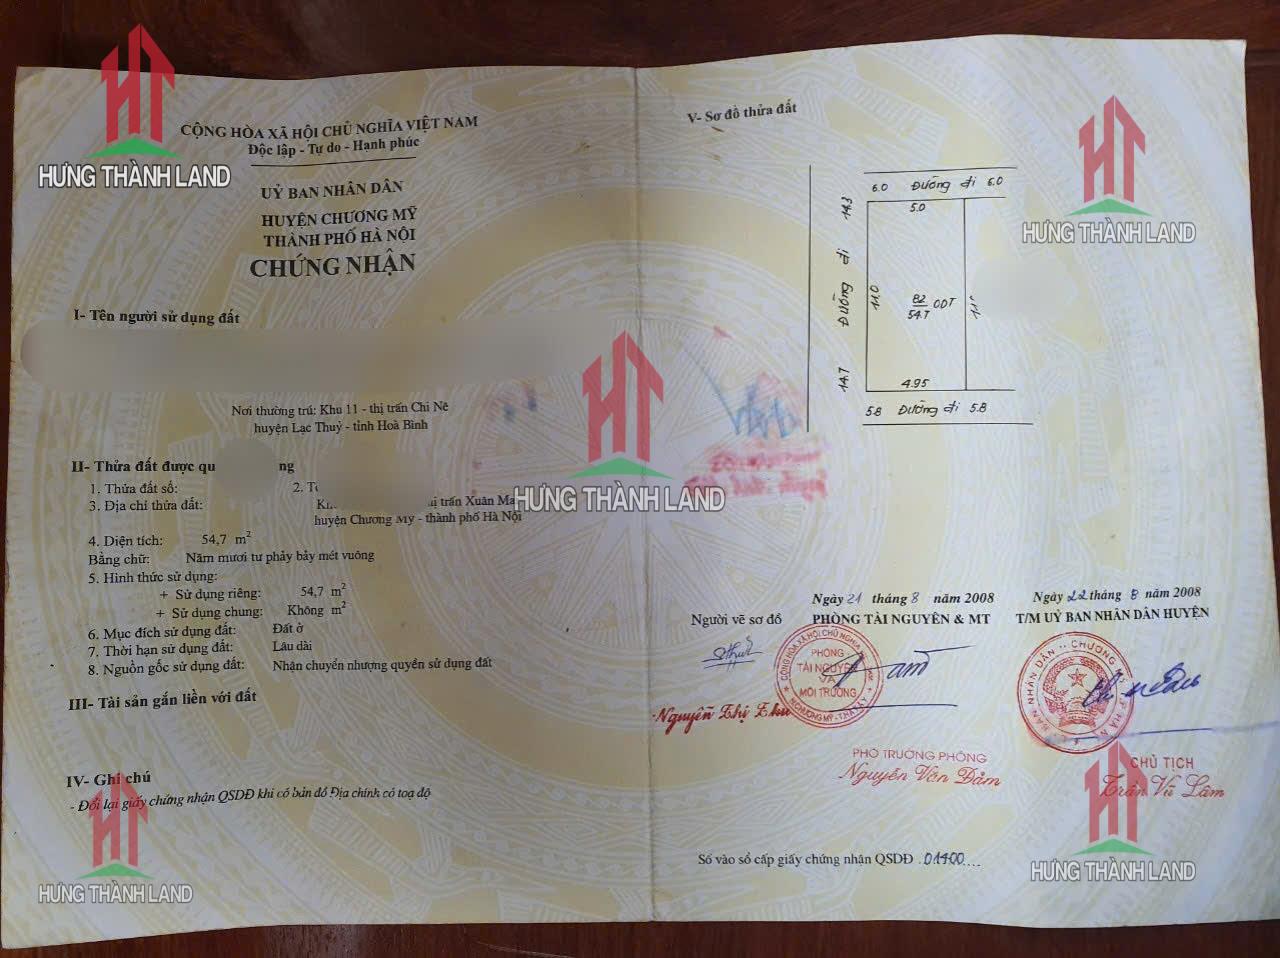 CỘNG HÒA XÃ HỘI CHỦ NGHĨA VIỆT NAM
Độc lập - Tự do - Hạnh phúc
UỶ BAN NHÂN DÂN
HUYỆN CHƯƠNG MỸ
THÀNH PHỐ HÀ NỘI
CHỨNG NHẬN
I- Tên người sử dụng đất
Nơi thường trú: Khu 11 - thị trấn Chi Nê
huyện Lạc Thuỷ - tỉnh Hoà Bình
II- Thửa đất được qu ng
1. Thửa đất số: 2.
3. Địa chỉ thửa đất: trấn Xuân Ma
huyện Chương Mỹ - thành phố Hà Nội
4. Diện tích: 54,7 m2
Bằng chữ: Năm mươi tư phảy bảy mét vuông
5. Hình thức sử dụng:
+ Sử dụng riêng: 54,7 m2
+ Sử dụng chung: Không m2
6. Mục đích sử dụng đất: Đất ở
7. Thời hạn sử dụng đất: Lâu dài
8. Nguồn gốc sử dụng đất: Nhận chuyển nhượng quyền sử dụng đất
III- Tài sản gắn liền với đất
IV- Ghi chú
- Đổi lại giấy chứng nhận QSDĐ khi có bản đồ Địa chính có toạ độ
V- Sơ đồ thửa đất
6.0 Đường đi 6.0
5.0
14.3
Đường đi
14.7
11.0
82
54.7
ODT
4.95
5.8 Đường đi 5.8
Ngày 21 tháng 8 năm 2008
Ngày 22 tháng 8 năm 2008
Người vẽ sơ đồ
PHÒNG TÀI NGUYÊN & MT
T/M UỶ BAN NHÂN DÂN HUYỆN
PHÒNG
TÀI NGUYÊN
VÀ
MÔI TRƯỜNG
Nguyễn Thị Thu
PHÓ TRƯỞNG PHÒNG
Nguyễn Văn Đảm
CHỦ TỊCH
Trần Vũ Lâm
Số vào sổ cấp giấy chứng nhận QSDĐ 01400
HƯNG THÀNH LAND
HƯNG THÀNH LAND
HƯNG THÀNH LAND
HƯNG THÀNH LAND
HƯNG THÀNH LAND